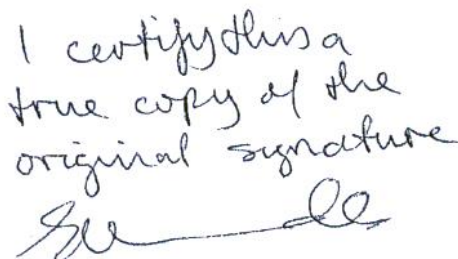 I certify this a
true copy of the
original signature